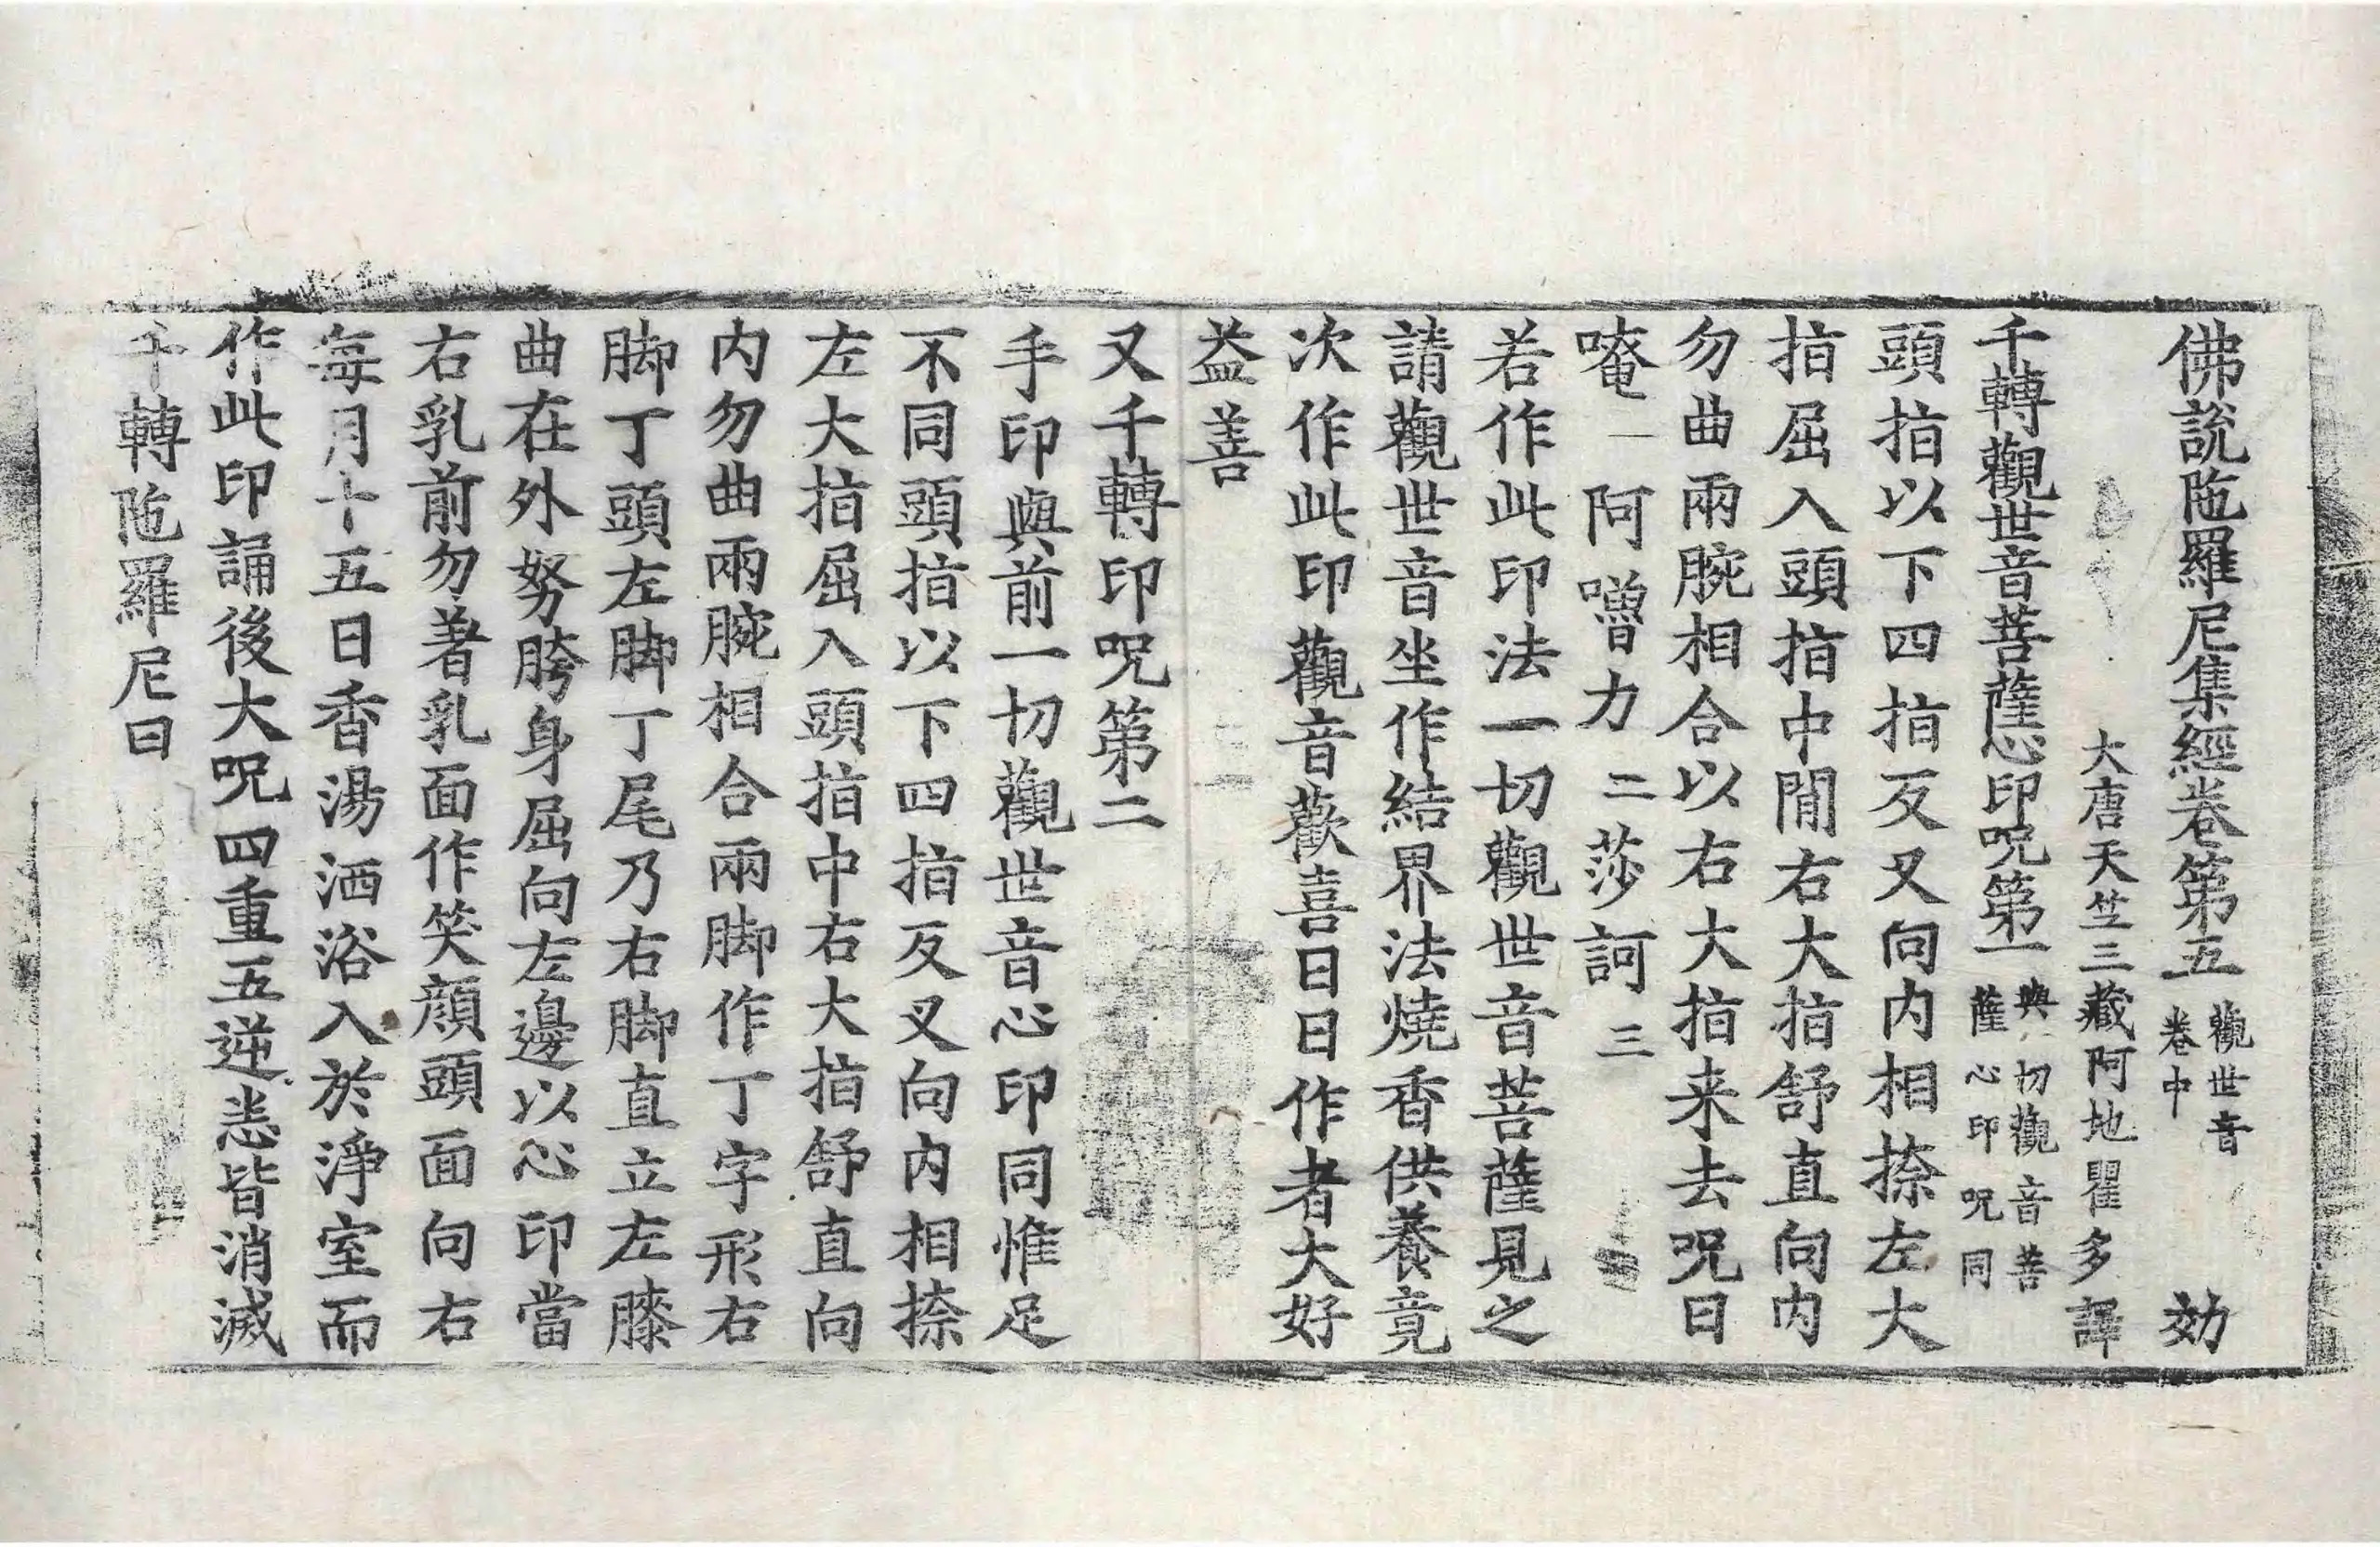 佛說陁羅尼集經卷第五 觀世音卷中 効
大唐天竺三藏阿地瞿多譯
千轉觀世音菩薩心印呪第一 與一切觀音菩薩心印呪同
頭指以下四指反叉向内相捺左大
指屈入頭指中閒右大指舒直向内
勿曲兩腕相合以右大指来去呪曰
唵一阿嚕力二莎訶三
若作此印法一切觀世音菩薩見之
請觀世音坐作結界法燒香供養竟
次作此印觀音歡喜日日作者大好
益善
又千轉印呪第二
手印與前一切觀世音心印同惟足
不同頭指以下四指反叉向内相捺
左大指屈入頭指中右大指舒直向
内勿曲兩腕相合兩脚作丁字形右
脚丁頭左脚丁尾乃右脚直立左膝
曲在外努胯身屈向左邊以心印當
右乳前勿著乳面作笑顔頭面向右
每月十五日香湯洒浴入於淨室而
作此印誦後大呪四重五逆恚皆消滅
千轉陁羅尼曰